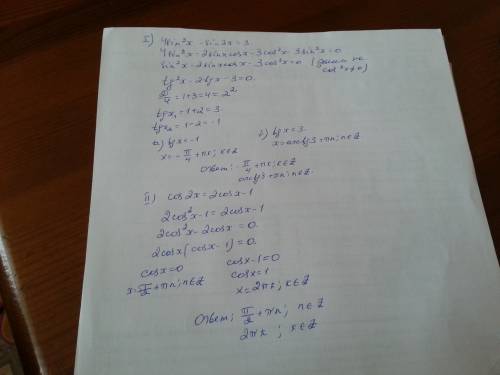 I) 4sin²x - sin2x = 3
4sin²x - 2sinxcosx - 3cos²x - 3sin²x = 0
sin²x - 2sinxcosx - 3cos²x = 0 (делим на cos²x ≠ 0)
tg²x - 2tgx - 3 = 0.
D/4 = 1+3 = 4 = 2².
tgx₁ = 1+2 = 3.
tgx₂ = 1-2 = -1
а) tgx = -1
x = -π/4 + πk; k∈Z
б) tgx = 3.
x = arctg3 + πn; n∈Z
Ответ: -π/4 + πk; k∈Z
arctg3 + πn; n∈Z.
II) cos2x = 2cosx - 1
2cos²x - 1 = 2cosx - 1
2cos²x - 2cosx = 0.
2cosx(cosx - 1) = 0.
cosx = 0
x = π/2 + πn; n∈Z
cosx - 1 = 0
cosx = 1
x = 2πk; k∈Z
Ответ: π/2 + πn; n∈Z
2πk ; k∈Z